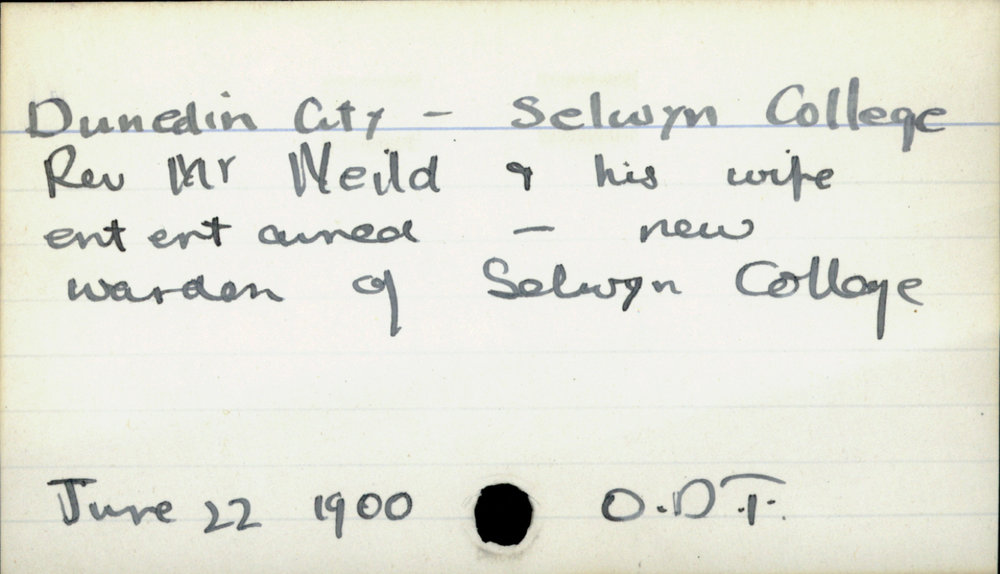 Dunedin City - Selwyn College
Rev Mr Neild & his wife
entertained - new
warden of Selwyn College
June 22 1900 O.D.T.